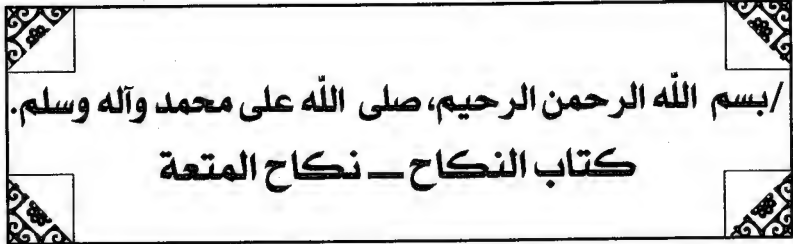 /بسم الله الرحمن الرحيم، صلى الله على محمد وآله وسلم.
كتاب النكاح ــ نكاح المتعة